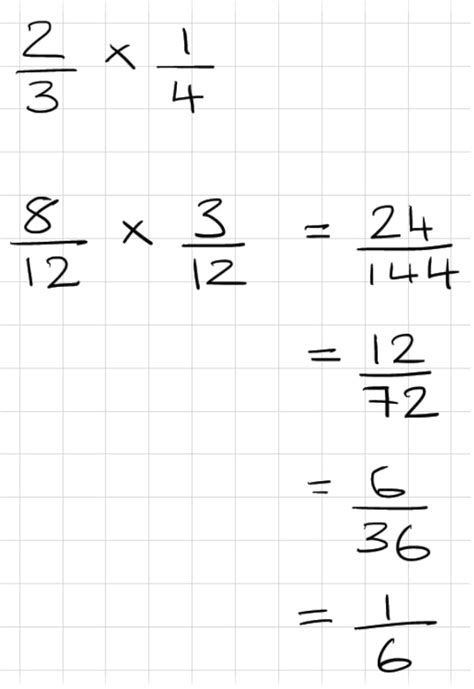 2/3 × 1/4
8/12 × 3/12 = 24/144
= 12/72
= 6/36
= 1/6